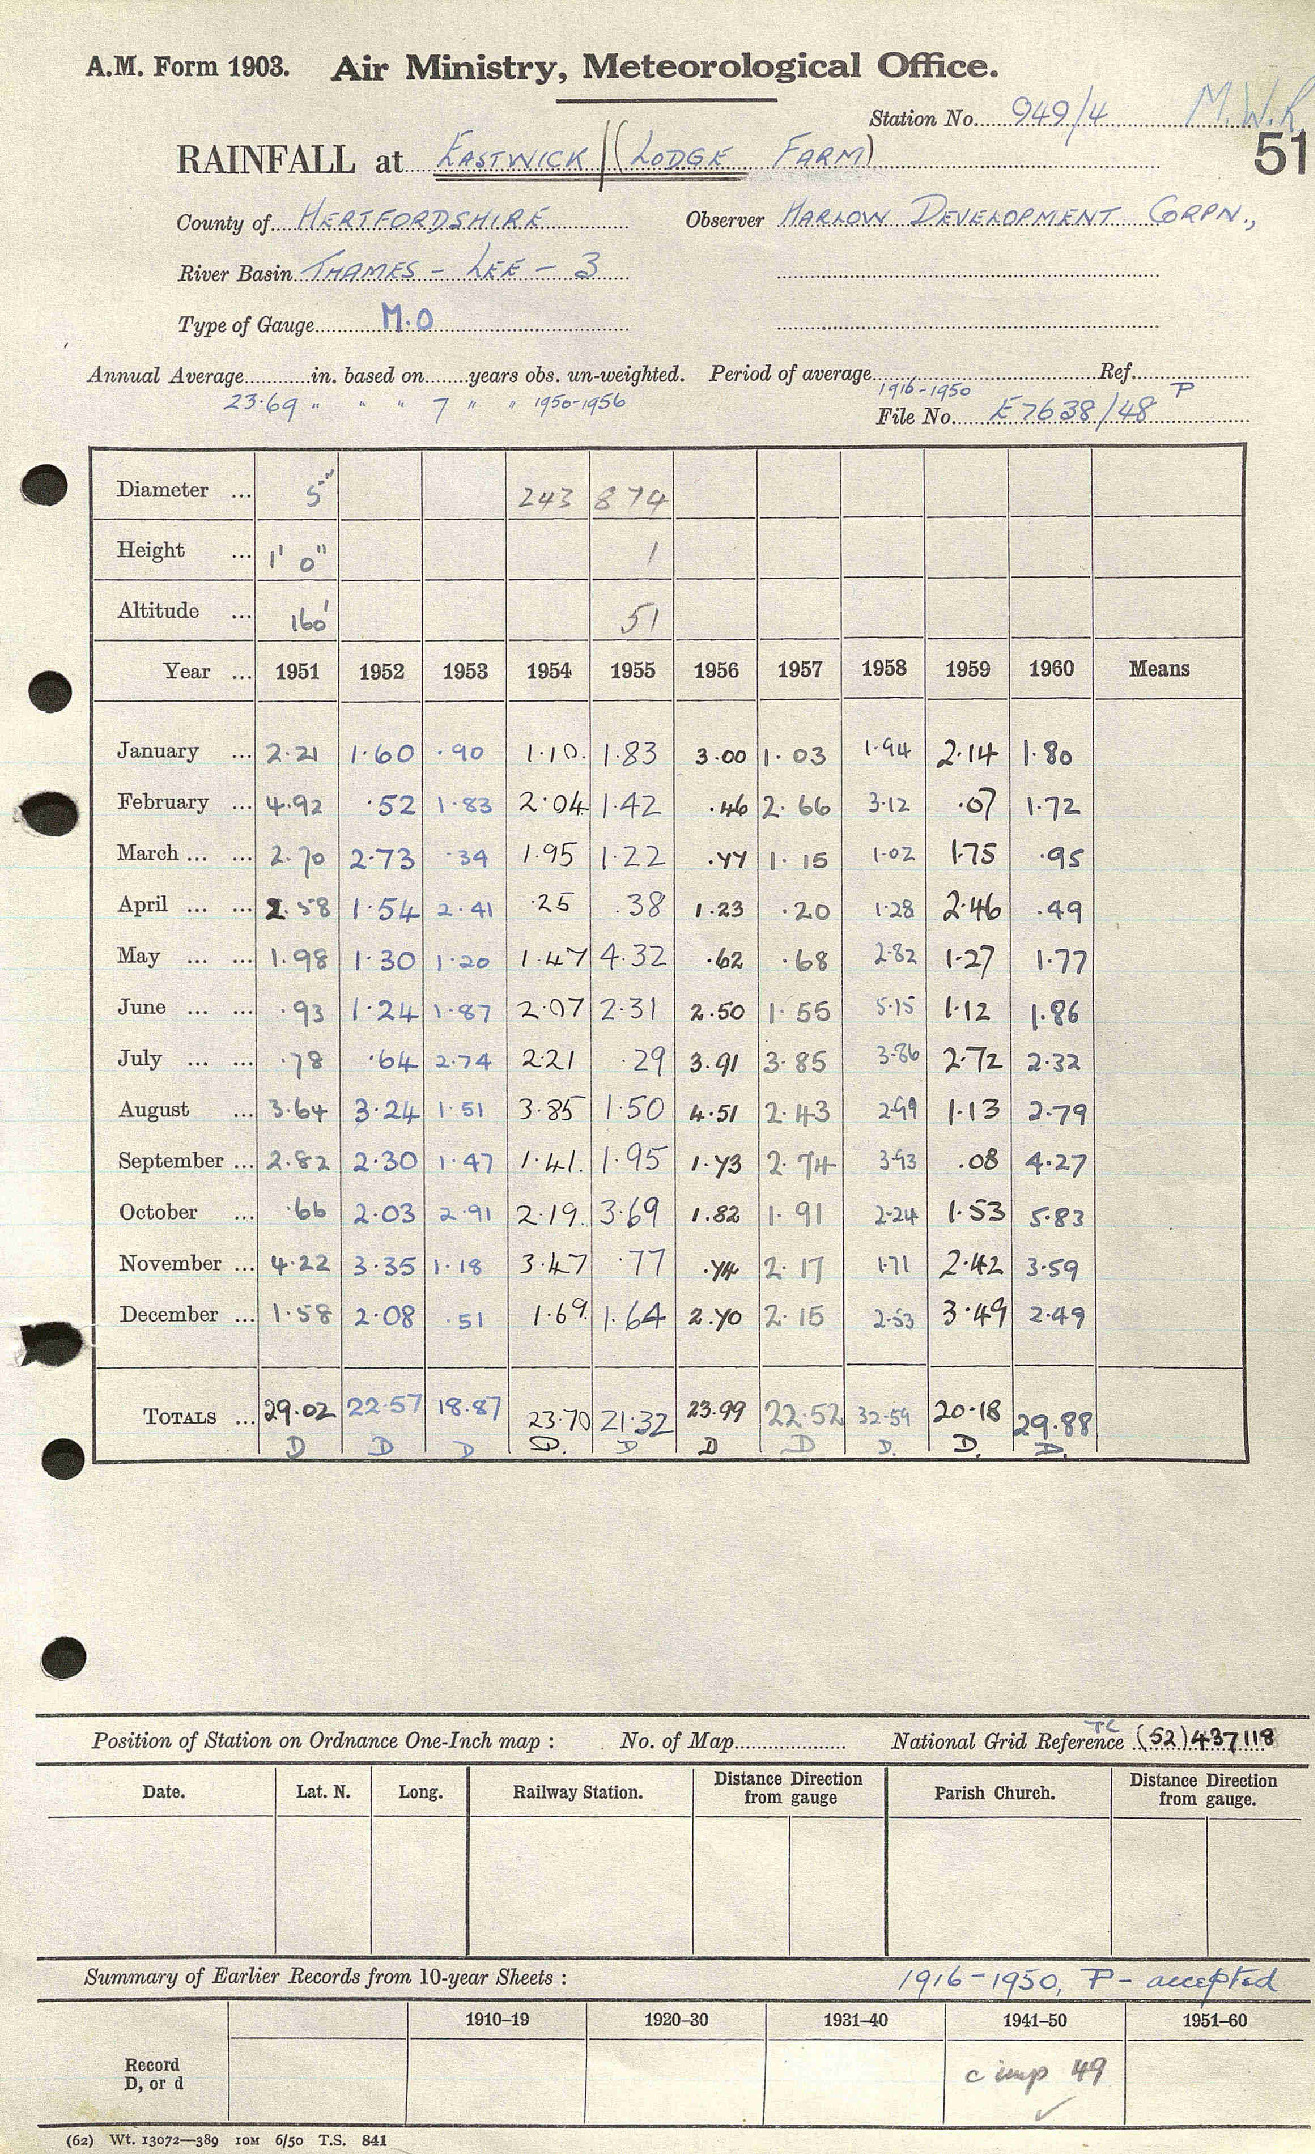 A.M. Form 1903. Air Ministry, Meteorological Office.
Station No. 949/4 M.W.R
RAINFALL at EASTWICK/(LODGE FARM) 51
County of HERTFORDSHIRE Observer HARLOW DEVELOPMENT CORPN.,
River Basin THAMES - LEE - 3
Type of Gauge M.O
Annual Average in. based on years obs. un-weighted. Period of average 1916-1950 Ref. P
23.69 " " " 7 " " 1950-1956 File No. E7638/48
Diameter ... 5" 243 874
Height ... 1' 0" 1
Altitude ... 160' 51
Year ... 1951 1952 1953 1954 1955 1956 1957 1958 1959 1960 Means
January ... 2.21 1.60 .90 1.10 1.83 3.00 1.03 1.94 2.14 1.80
February ... 4.92 .52 1.83 2.04 1.42 .46 2.66 3.12 .07 1.72
March ... ... 2.70 2.73 .34 1.95 1.22 .77 1.15 1.02 1.75 .95
April ... ... 2.58 1.54 2.41 .25 .38 1.23 .20 1.28 2.46 .49
May ... ... 1.98 1.30 1.20 1.47 4.32 .62 .68 2.82 1.27 1.77
June ... ... .93 1.24 1.87 2.07 2.31 2.50 1.55 5.15 1.12 1.86
July ... ... .78 .64 2.74 2.21 .29 3.91 3.85 3.86 2.72 2.32
August ... 3.64 3.24 1.51 3.85 1.50 4.51 2.43 2.99 1.13 2.79
September ... 2.82 2.30 1.47 1.41 1.95 1.73 2.74 3.93 .08 4.27
October ... .66 2.03 2.91 2.19 3.69 1.82 1.91 2.24 1.53 5.83
November ... 4.22 3.35 1.18 3.47 .77 .74 2.17 1.71 2.42 3.59
December ... 1.58 2.08 .51 1.69 1.64 2.70 2.15 2.53 3.49 2.49
TOTALS ... 29.02 22.57 18.87 23.70 21.32 23.99 22.52 32.59 20.18 29.88
D D D D. D D D D. D. D.
Position of Station on Ordnance One-Inch map : No. of Map National Grid Reference TL (52)437118
Date. Lat. N. Long. Railway Station. Distance Direction from gauge Parish Church. Distance Direction from gauge.
Summary of Earlier Records from 10-year Sheets : 1916-1950, P - accepted
1910–19 1920–30 1931–40 1941–50 1951–60
Record
D, or d c imp 49 ✓
(62) Wt. 13072—389 10M 6/50 T.S. 841